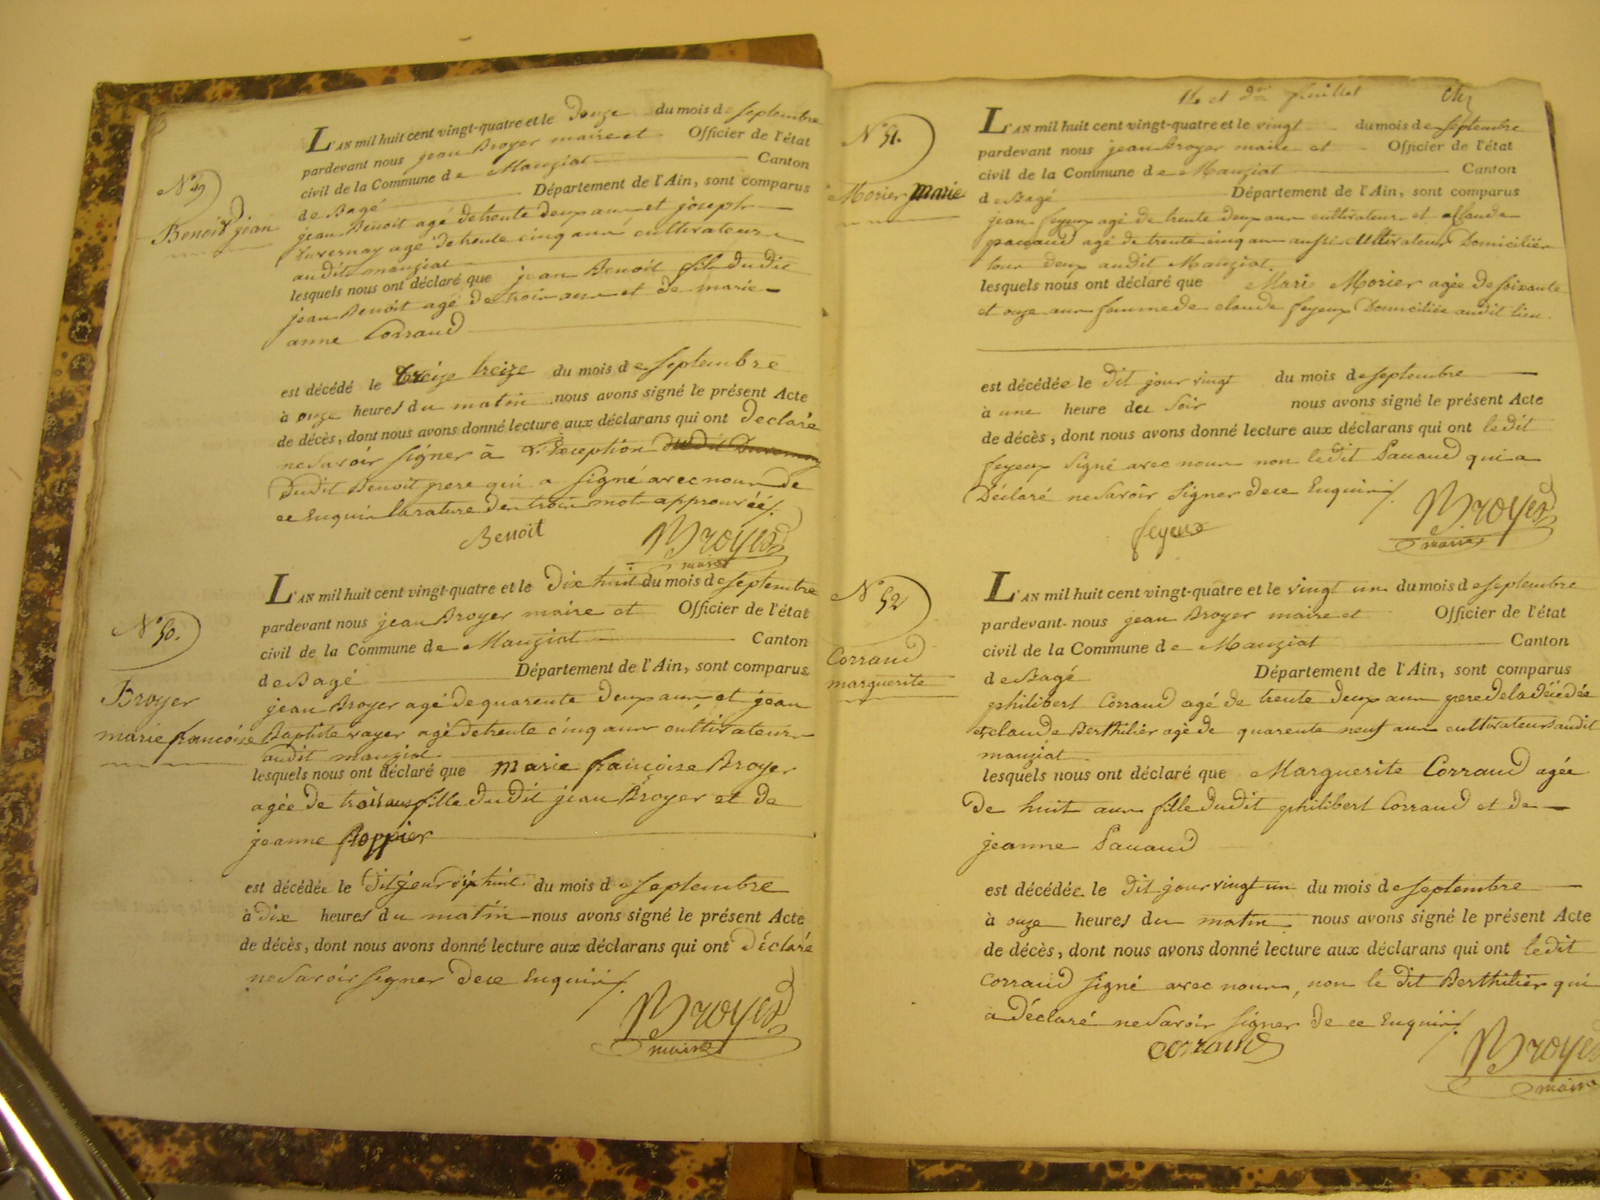 N° 49
Benoit jean
L'AN mil huit cent vingt-quatre et le Douze du mois de septembre
pardevant nous jean Broyer maire et Officier de l'état
civil de la Commune de Manziat Canton
de Bagé Département de l'Ain, sont comparus
jean Benoit agé de trente deux ans et joseph
Duvernay agé de trente cinq ans cultivateurs
audit manziat
lesquels nous ont déclaré que jean Benoit fils dudit
jean Benoit agé de trois ans et de marie
anne Corraud
est décédé le treize du mois de septembre
à onze heures du matin nous avons signé le présent Acte
de décès, dont nous avons donné lecture aux déclarans qui ont déclaré
ne savoir signer à l'Exception dudit Duvernay
dudit Benoit pere qui a signé avec nous de
ce Enquis la rature de trois mots approuvée
Benoit Broyer
maire
N° 50.
Broyer
marie francoise
L'AN mil huit cent vingt-quatre et le Dix huit du mois de septembre
pardevant nous jean Broyer maire et Officier de l'état
civil de la Commune de Manziat Canton
de Bagé Département de l'Ain, sont comparus
jean Broyer agé de quarente deux ans, et jean
Baptiste rayer agé de trente cinq ans cultivateurs
audit manziat
lesquels nous ont déclaré que Marie françoise Broyer
agée de trois ans fille dudit jean Broyer et de
jeanne
est décédée le Dit jour dix huit du mois de septembre
à dix heures du matin nous avons signé le présent Acte
de décès, dont nous avons donné lecture aux déclarans qui ont déclaré
ne savoir signer de ce Enquis
Broyer
maire
14 et feuillet
N° 51.
Morier Marie
L'AN mil huit cent vingt-quatre et le vingt du mois de septembre
pardevant nous jean Broyer maire et Officier de l'état
civil de la Commune de Manziat Canton
de Bagé Département de l'Ain, sont comparus
jean feyeux agé de trente deux ans cultivateur et claude
pauaud agé de trente cinq ans aussi cultivateur Domiciliés
tous deux audit Manziat.
lesquels nous ont déclaré que Marie Morier agée de soixante
et onze ans femme de claude feyeux Domiciliée audit lieu.
est décédée le dit jour vingt du mois de septembre
à une heure du soir nous avons signé le présent Acte
de décès, dont nous avons donné lecture aux déclarans qui ont ledit
feyeux Signé avec nous non ledit Pauaud qui a
Déclaré ne savoir Signer de ce Enquis
feyeux Broyer
maire
N° 52
Corraud
marguerite
L'AN mil huit cent vingt-quatre et le vingt un du mois de septembre
pardevant nous jean Broyer maire et Officier de l'état
civil de la Commune de Manziat Canton
de Bagé Département de l'Ain, sont comparus
philibert Corraud agé de trente deux ans pere de la décédée
et claude Berthilier agé de quarente neuf ans cultivateurs audit
manziat
lesquels nous ont déclaré que Marguerite Corraud agée
De huit ans fille dudit philibert Corraud et de
jeanne Pauaud
est décédée le dit jour vingt un du mois de septembre
à onze heures du matin nous avons signé le présent Acte
de décès, dont nous avons donné lecture aux déclarans qui ont ledit
Corraud signé avec nous, non le dit Berthilier qui
a déclaré ne savoir signer de ce Enquis
corraud Broyer
maire